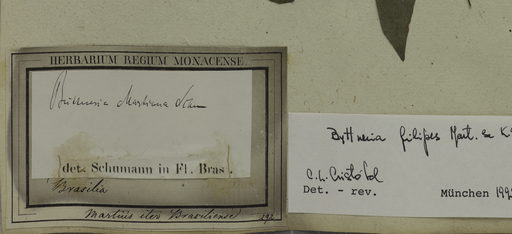 HERBARIUM REGIUM MONACENSE.
Büttneria Martiana Schum
det. Schumann in Fl. Bras.
Brasilia
Martius iter Brasiliense
Byttneria filipes Mart. ex K.
C.L. Cristóbal
Det. - rev. München 1992